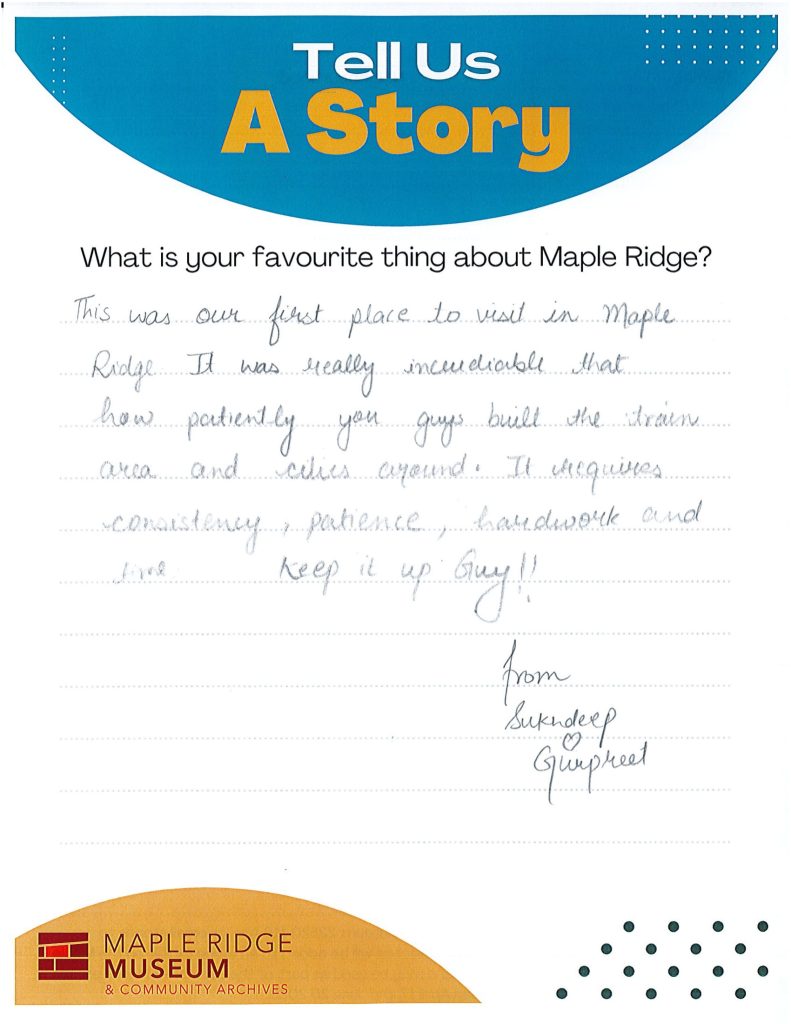 Tell Us
A Story
What is your favourite thing about Maple Ridge?
This was our first place to visit in Maple
Ridge It was really increadiable that
how patiently you guys built the train
area and cities around. It requires
consistency, patience, hardwork and
time Keep it up Guy!!
from
Sukhdeep
♡
Gurpreet
MAPLE RIDGE
MUSEUM
& COMMUNITY ARCHIVES